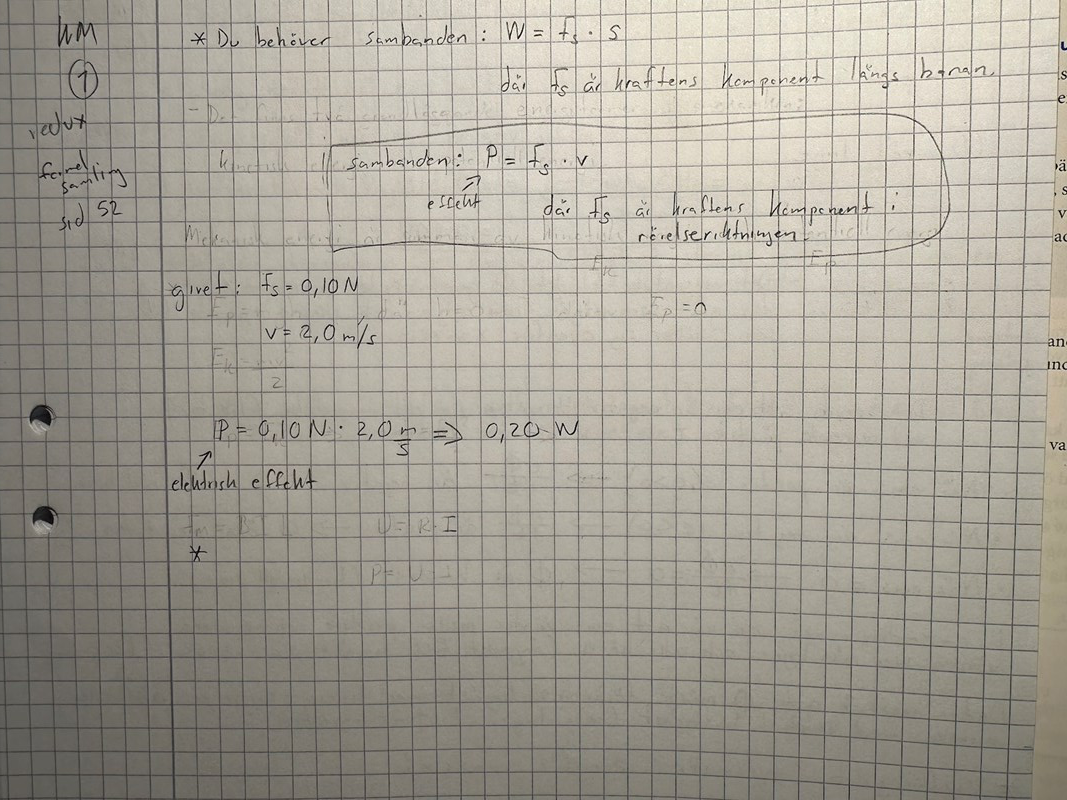 KM
1
redux
formelsamling
sid 52
* Du behöver sambanden: W = Fs · s
där Fs är kraftens komponent längs banan.
sambanden: P = Fs · v
effekt
där Fs är kraftens komponent i
rörelseriktningen.
givet: Fs = 0,10 N
v = 2,0 m/s
P = 0,10 N · 2,0 m/s => 0,20 W
elektrisk effekt
*